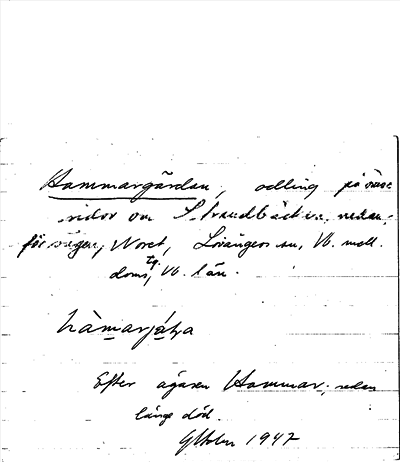 Hammargärdan, odling på ömse
sidor om Strandbäcken, nedan-
för vägen, Noret, Lövångers sn, Vb. mell.
doms tg. Vb. län.
hàmarjæ̀ḷa
Efter ägaren Hammar, sedan
länge död.
GHolm 1947